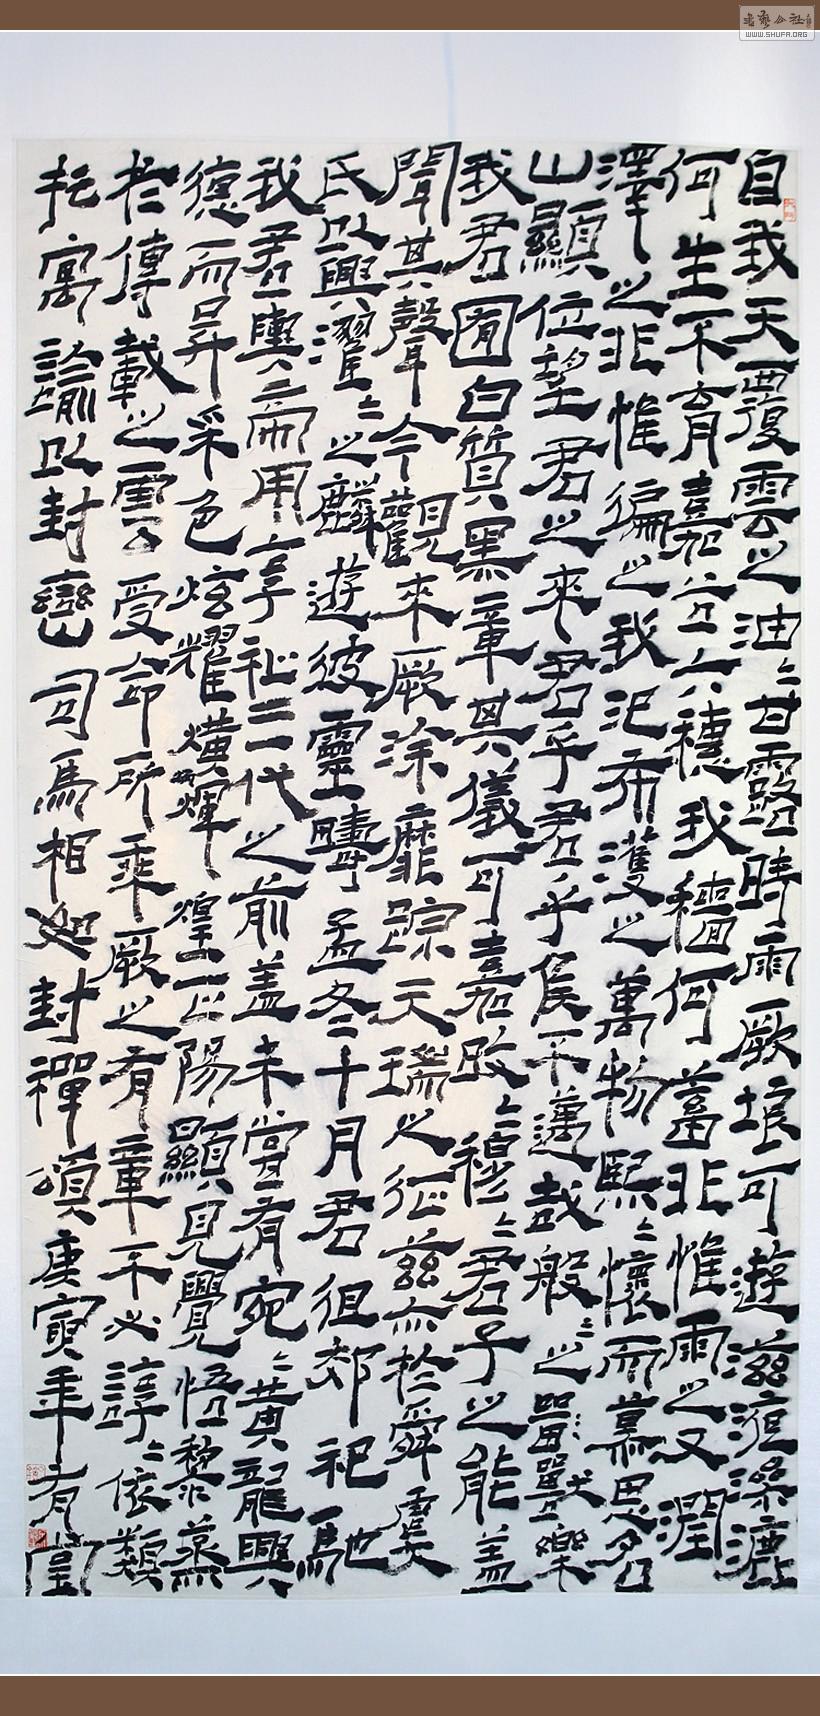 自我天覆雲之油〻甘露時雨厥壤可遊滋液滲漉
何生不育嘉谷六穗我穡何蓄非惟雨之又潤
澤之非惟徧之我氾布濩之萬物熙〻懷而慕思名
山顯位望君之來君乎君乎侯不邁哉般〻之獸樂
我君囿白質黑章其儀可嘉旼〻穆〻君子之能蓋
聞其聲今觀來厥涂靡踪天瑞之征茲亦於舜虞
氏以興濯〻之麟遊彼靈畤孟冬十月君徂郊祀馳
我君輿帝用享祉三代之前蓋未嘗有宛〻黃龍興
德而昇采色炫耀熿炳輝煌正陽顯見覺悟黎蒸
於傳載之雲受命所乘厥之有章不必諄〻依類
托寓諭以封巒司馬相如封禪頌庚寅年有
WWW.SHUFA.ORG